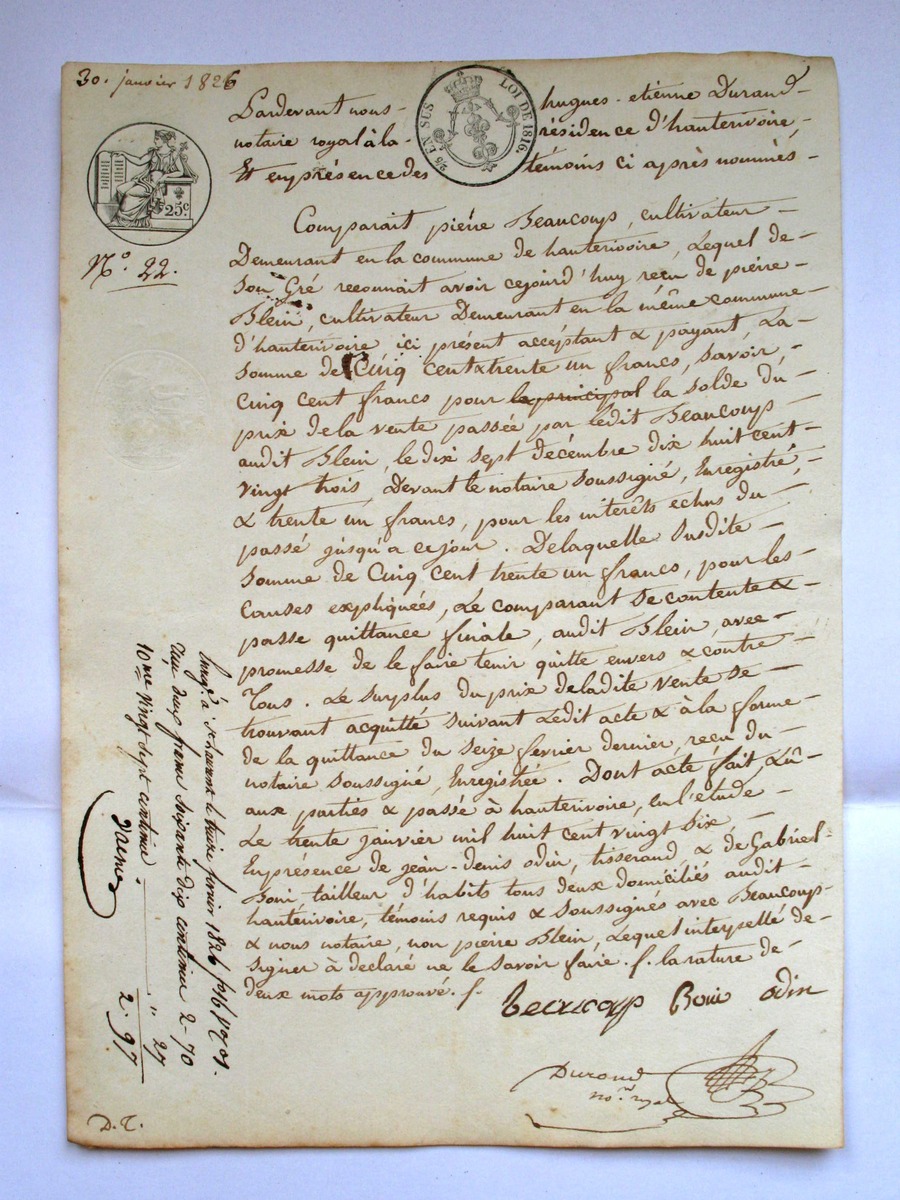 30. janvier 1826
Pardevant nous - hugues - etienne Durand -
notaire royal à la résidence d'hauterivoire,
Et en présence des témoins ci après nommés -
25 EN SUS
LOI DE 1816.
25c.
N.o 22.
Comparait pierre Beaucoup, cultivateur -
Demeurant en la commune de hauterivoire, Lequel de -
Son Gré reconnait avoir cejourd'huy reçu de pierre
Blein, cultivateur Demeurant en la même commune -
d'hauterivoire ici présent acceptant & payant, La -
somme de Cinq cent & trente un francs, savoir, -
Cinq cent francs pour le principal la solde du -
prix de la vente passée par ledit Beaucoup -
audit Blein, le dix sept décembre dix huit cent -
vingt trois, Devant le notaire soussigné, Enregistré, -
& trente un francs, pour les intérêts echus du -
passé jusqu'a ce jour. De laquelle susdite -
somme de Cinq cent trente un francs, pour les -
Causes expliquées, Le comparant se contente & -
passe quittance finale, audit Blein, avec -
promesse de le faire tenir quitte envers & contre -
Tous. Le surplus du prix deladite vente se -
trouvant acquitté suivant Ledit acte & à la forme -
de la quittance du seize fevrier dernier, reçu du -
notaire soussigné, Enregistrée. Dont acte fait, Lû -
aux parties & passé à hauterivoire, en l'étude -
Le trente janvier mil huit cent vingt six -
En présence de jean-Denis odin, tisserand, & de Gabriel -
Boni, tailleur d'habits tous deux domiciliés audit -
hauterivoire, témoins requis & soussignés avec Beaucoup -
& nous notaire, non pierre Blein, Lequel interpellé de -
signer à déclaré ne le savoir faire. f. la rature de -
deux mots approuvé. f.
beaucoup Boni odin
Durand
no.re royal
Enreg. à St Laurent le treize fevrier 1826
Reçu deux francs soixante dix centimes 2-70
10me vingt sept centimes " 27
2.97
D.T.